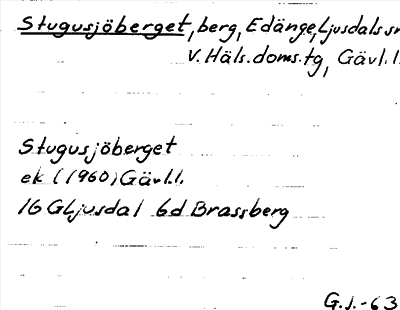 Stugusjöberget, berg, Edänge, Ljusdals sn
V. Häls. doms. tg, Gävl. l.
Stugusjöberget
ek (1960) Gävl. l.
16 G Ljusdal 6d Brassberg
G. J. - 63